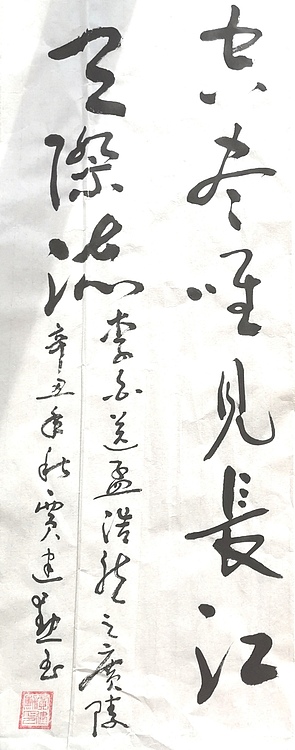 空尽唯見長江
天際流
李白送孟浩然之廣陵
辛丑年秋賈建